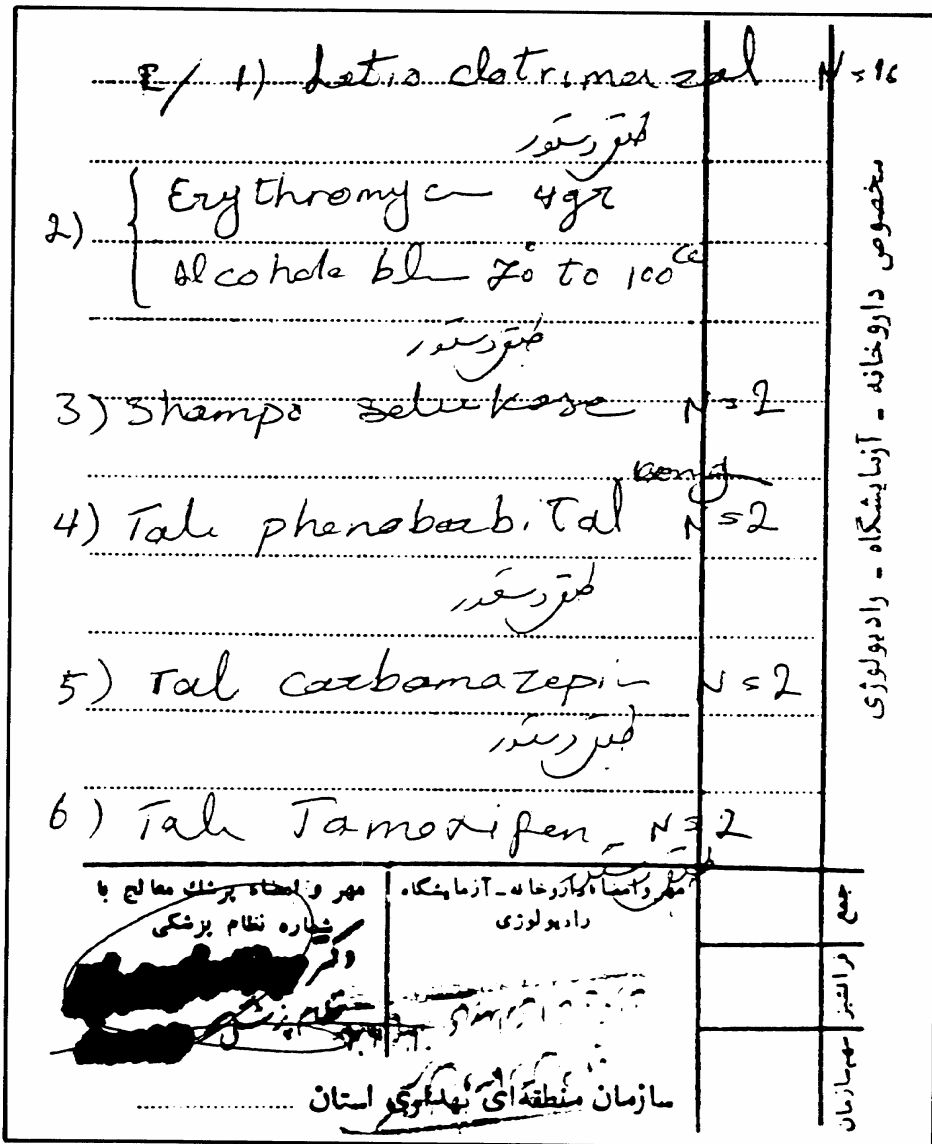 R/ 1) Lotio clotrimazol N=16
طبق دستور
2) { Erythromycin 4gr
Alcohole bl 70° to 100cc
طبق دستور
3) Shampo selukase N=2
4) Tab phenobarbital N=2
طبق دستور
5) Tab carbamazepin N=2
طبق دستور
6) Tab Tamoxifen N=2
طبق دستور
مخصوص داروخانه - آزمایشگاه - رادیولوژی
مهر و امضاء پزشک معالج با
شماره نظام پزشکی
دکتر
مهر و امضاء داروخانه - آزمایشگاه
رادیولوژی
جمع
فرانشیز
سهم سازمان
سازمان منطقه‌ای بهداری استان ..........